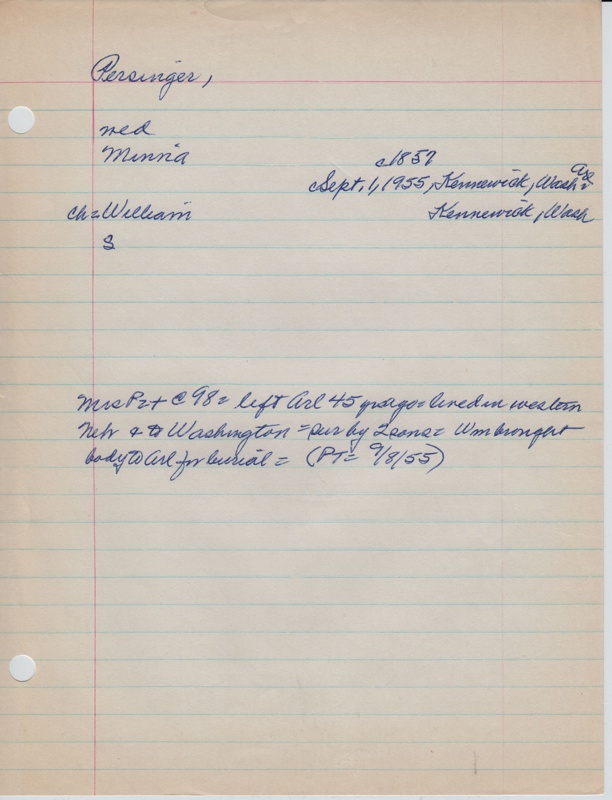 Persinger,
med
Minnia c1857
Sept. 1, 1955, Kennewick, Wash = Arl
ch = William Kennewick, Wash
S
Mrs P = + @ 98 = left Arl 45 yrs ago = lived in western
Nebr & to Washington = sur by 2 sons = Wm brought
body to Arl for burial = (PT = 9/8/55)